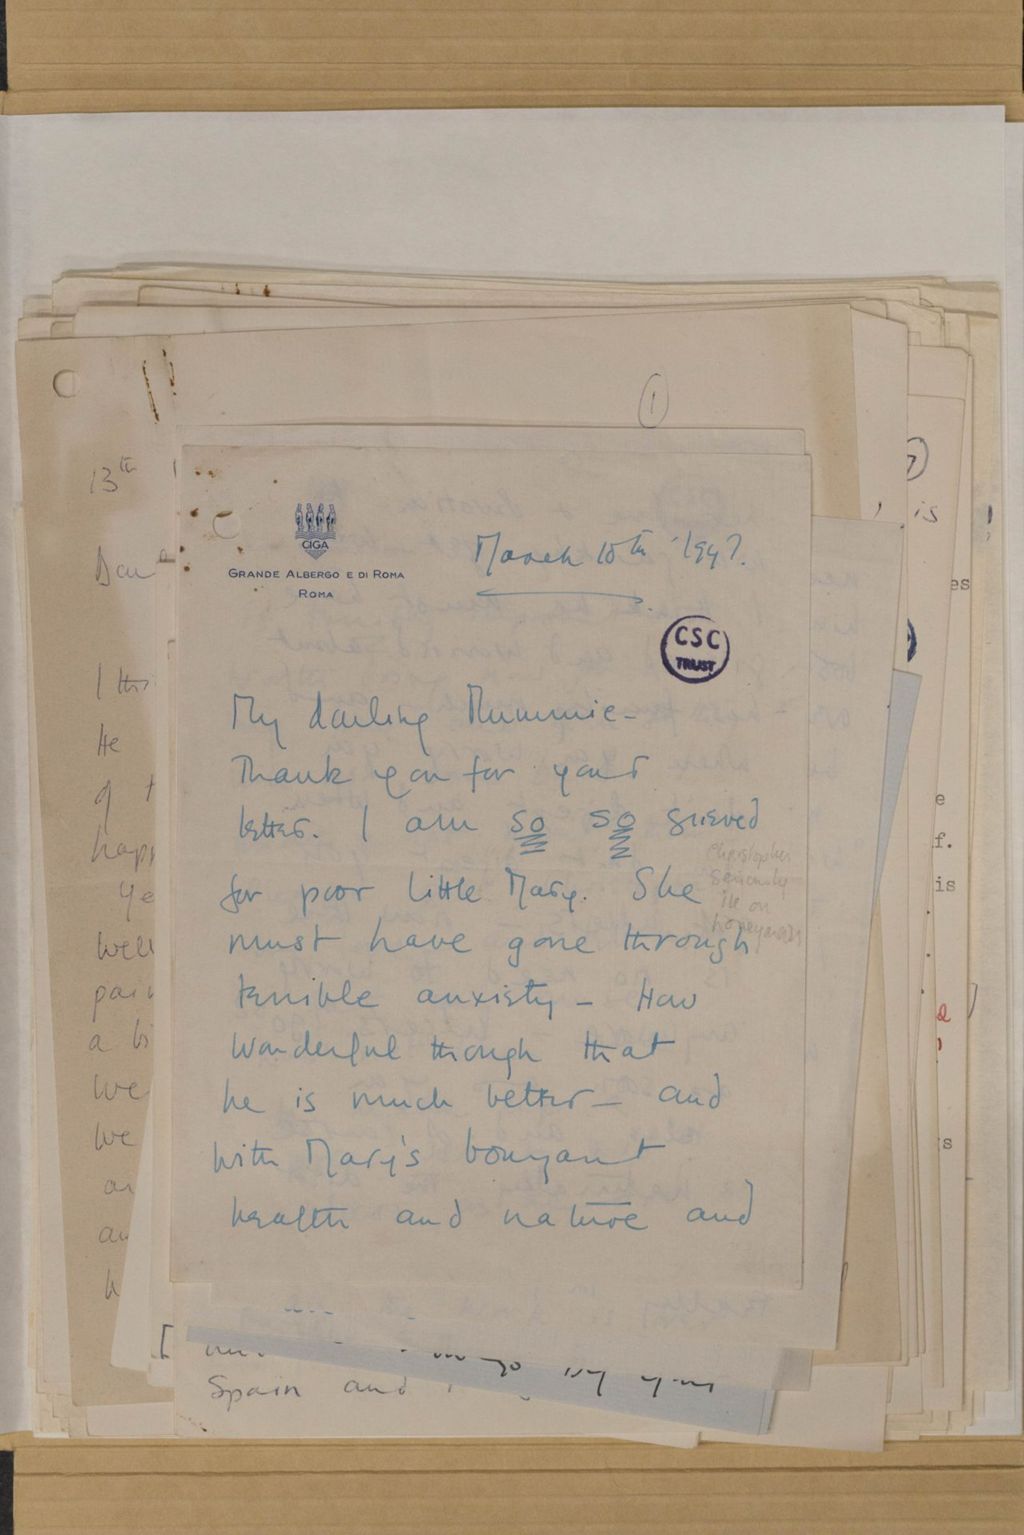 ①
13th
is
CIGA
GRANDE ALBERGO E DI ROMA
ROMA
March 10th 1947.
CSC
TRUST
My darling Mummie-
Thank you for your
letter. I am so so grieved
for poor little Mary. She
must have gone through
terrible anxiety - How
wonderful though that
he is much better - and
with Mary's bouyant
health and nature and
Christopher
Seriously
ill on
honeymoon
He
a
we
we
es
e
f.
is
s
Spain and